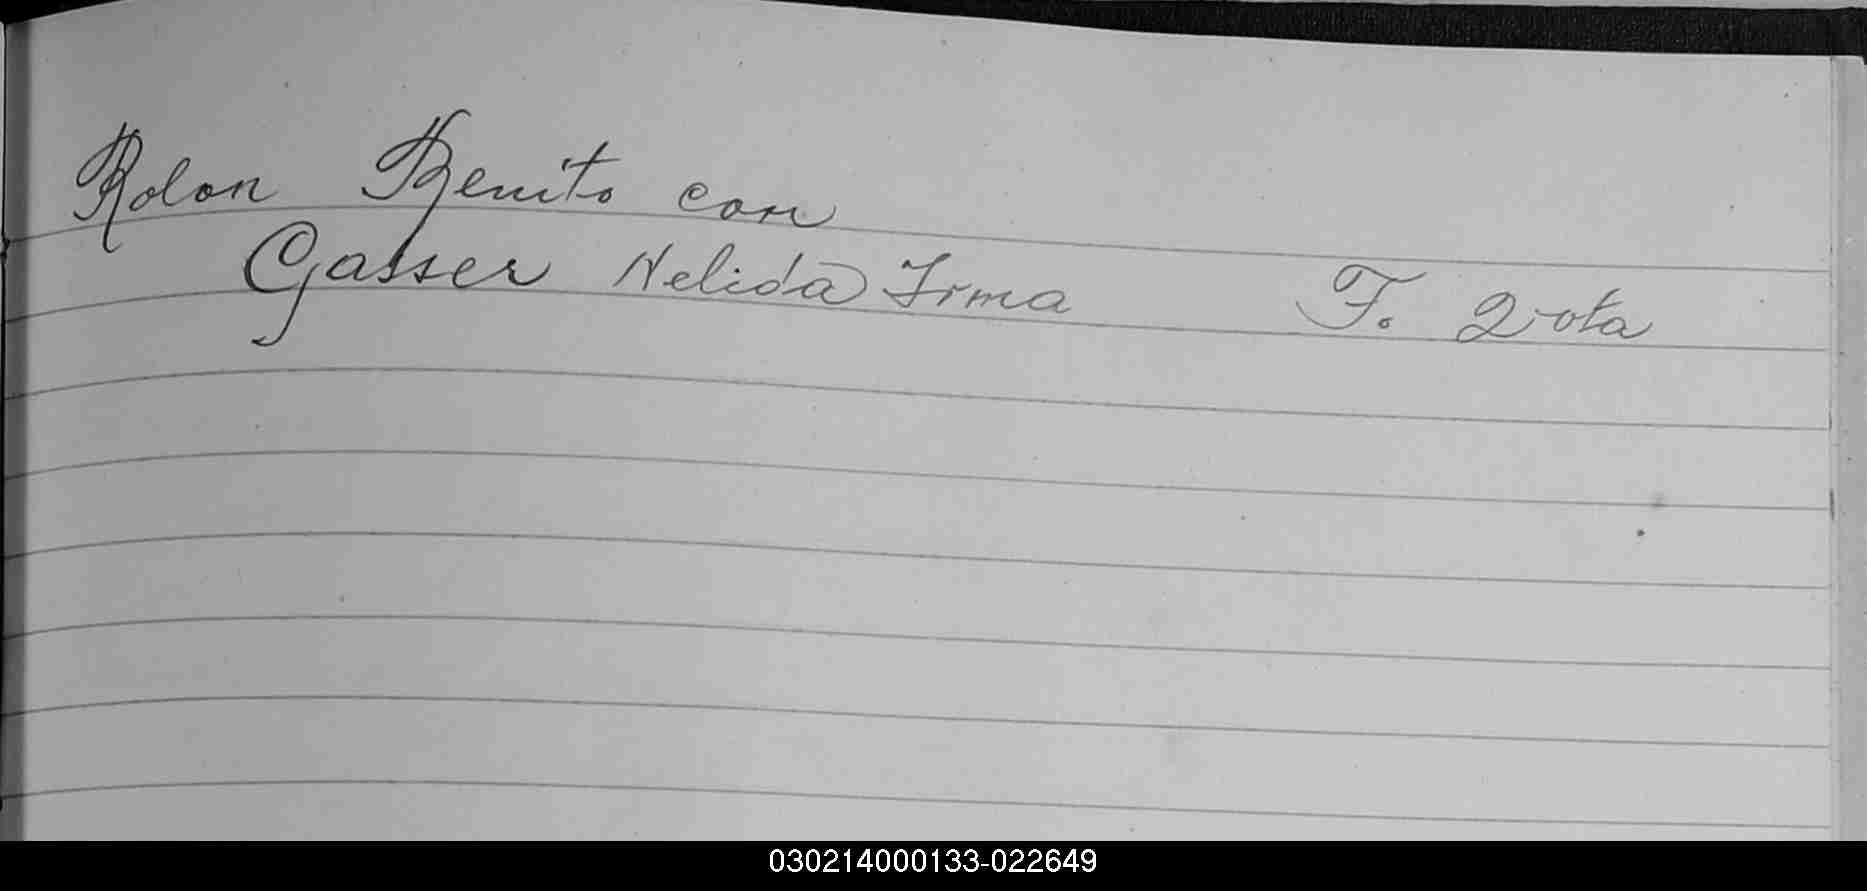 Rolon Benito con
Gasser Nelida Irma F. 2 vta
030214000133-022649